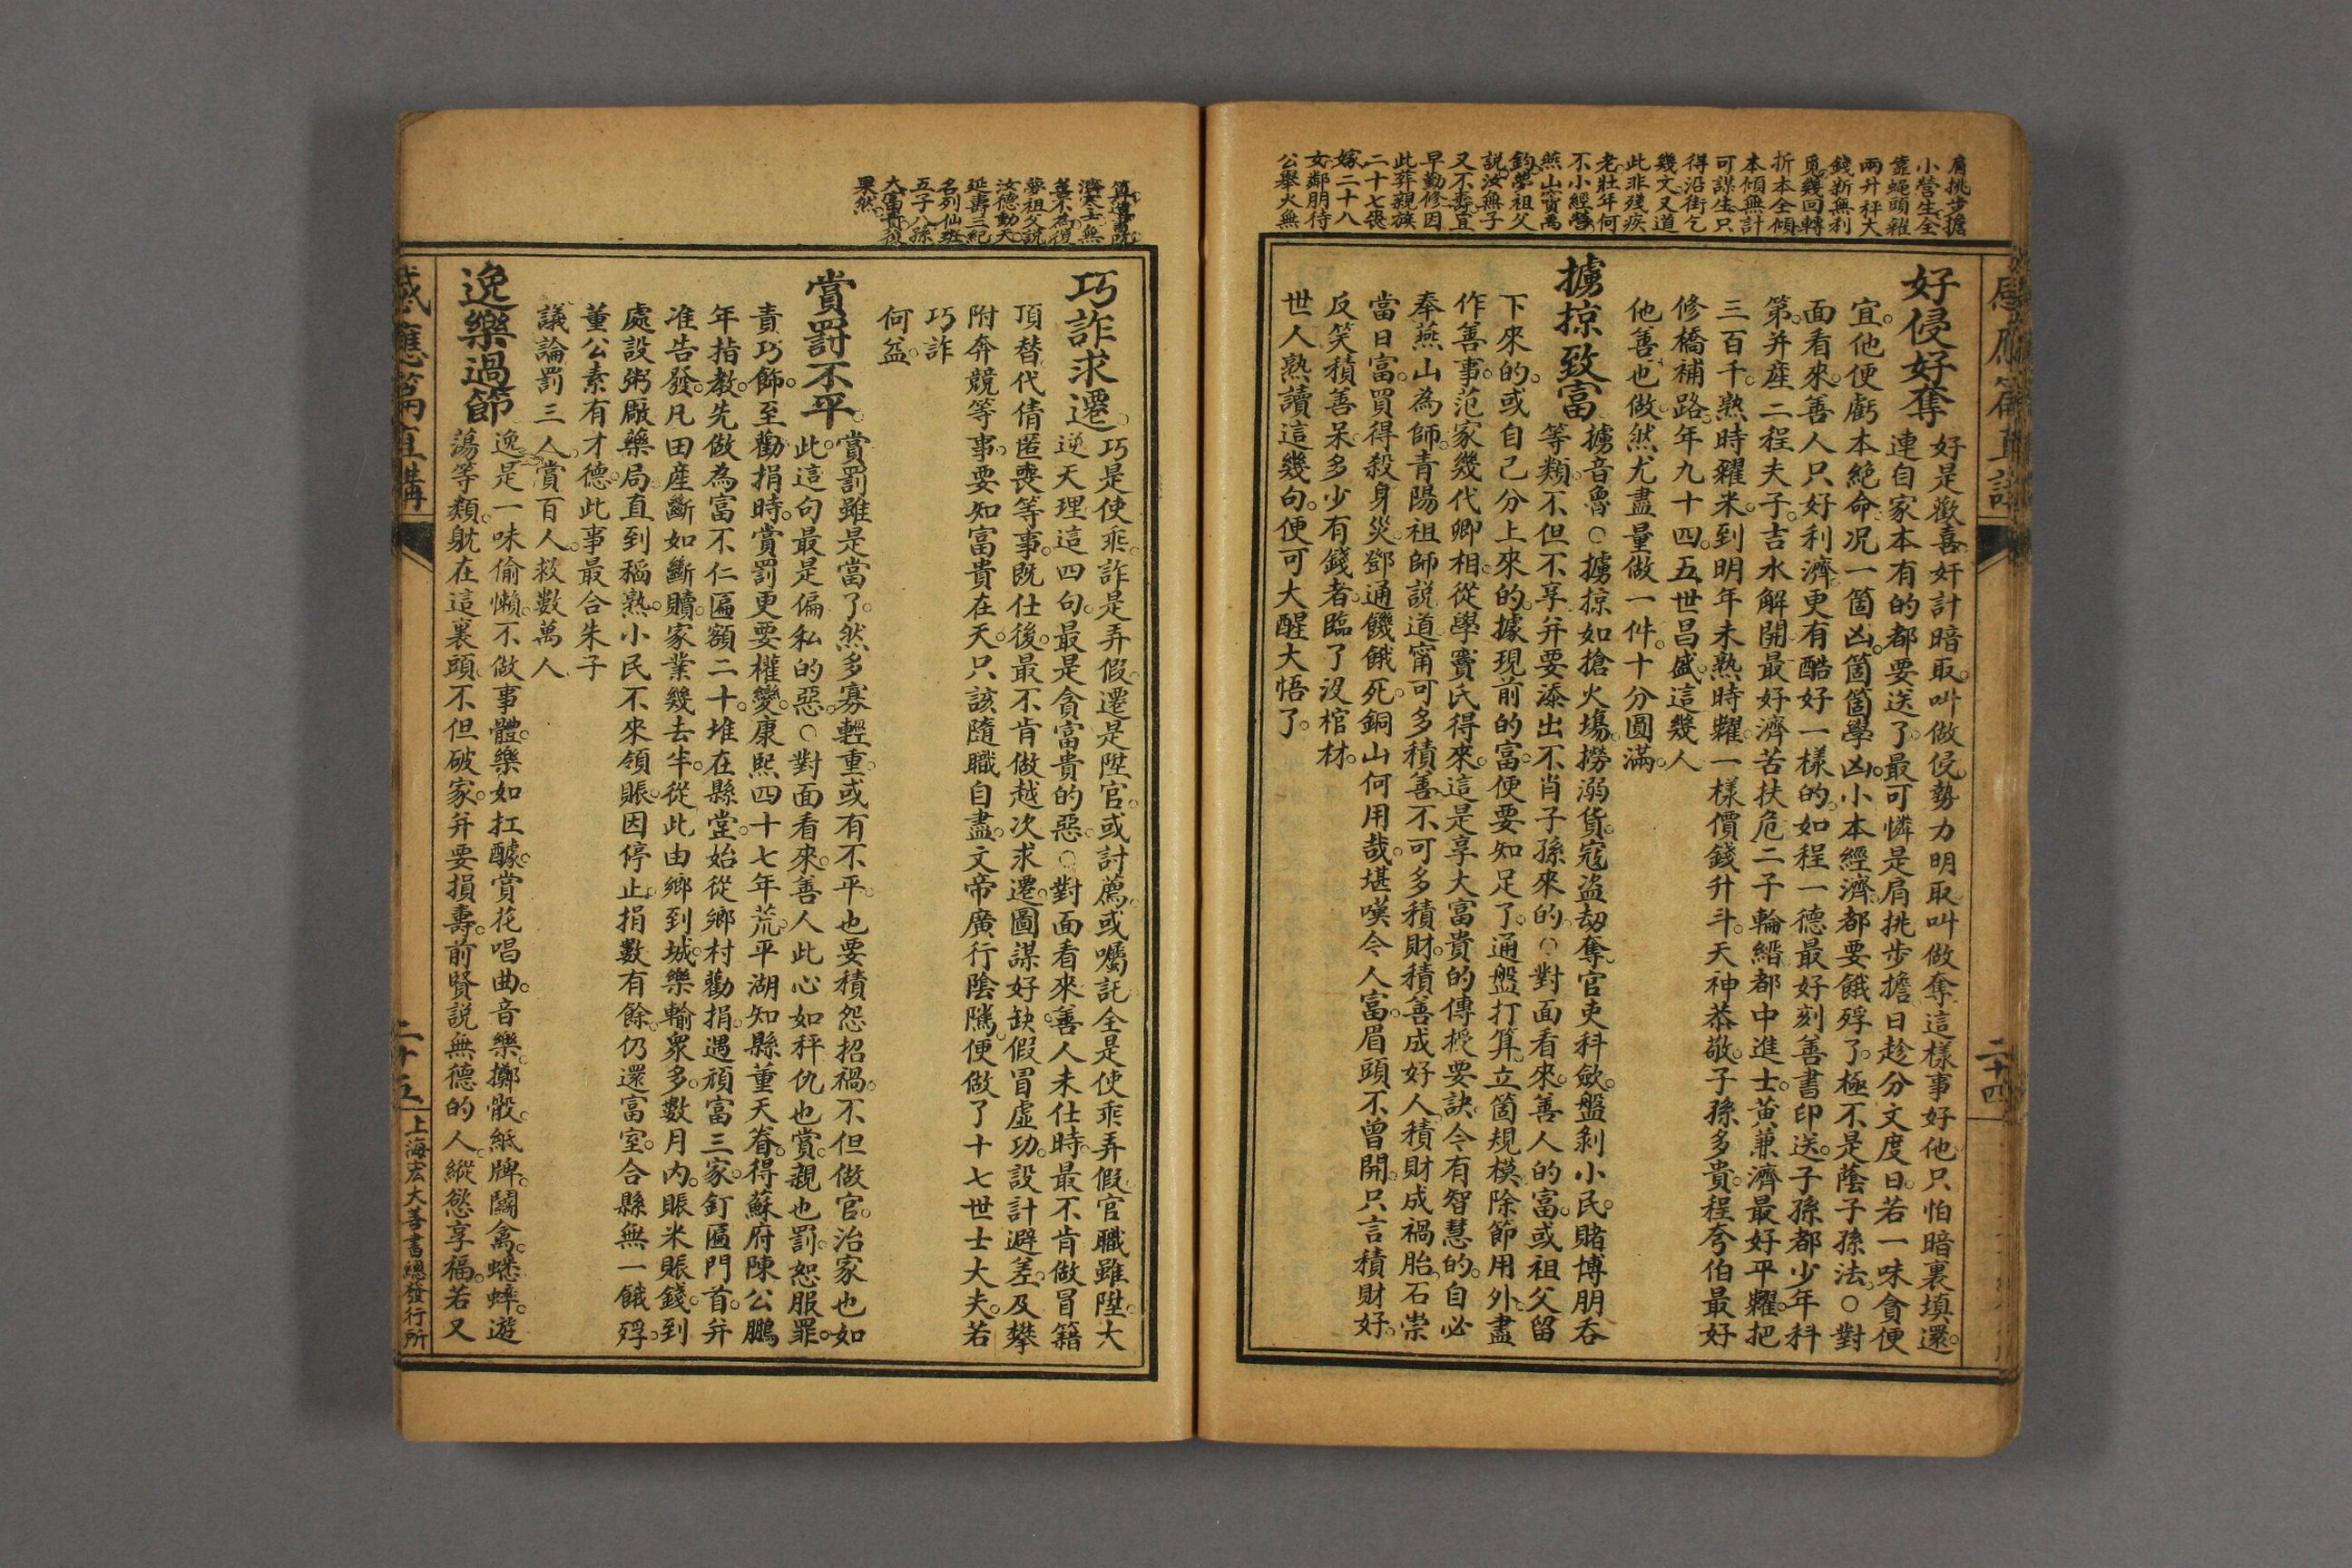 感應篇直講
二十四
肩挑步擔
小營生全
靠蠅頭糴
兩升秤大
錢新無利
覓幾回轉
折本全傾
本傾無計
可謀生只
得沿街乞
幾文又道
此非殘疾
老壯年何
不小經營
燕山竇禹
鈞夢祖父
說汝無子
又不壽宜
早勤修因
此葬親族
二十七喪
嫁二十八
女鄰朋待
公舉火無
好侵好奪
好是歡喜奸計暗取叫做侵勢力明取叫做奪這樣事好他只怕暗裏填還
連自家本有的都要送了最可憐是肩挑步擔日趁分文度日若一味貪便
宜他便虧本絕命况一箇凶箇箇學凶小本經濟都要餓殍了極不是蔭子孫法○對
面看來善人只好利濟更有酷好一樣的如程一德最好刻善書印送子孫都少年科
第并產二程夫子吉水解開最好濟苦扶危二子輪縉都中進士黃兼濟最好平糶把
三百千熟時糴米到明年未熟時糶一樣價錢升斗天神恭敬子孫多貴程夸伯最好
修橋補路年九十四五世昌盛這幾人
他善也做然尤盡量做一件十分圓滿
擄掠致富
擄音魯○擄掠如搶火塲撈溺貨寇盜刧奪官吏科歛盤剝小民賭博朋吞
等類不但不享并要添出不肖子孫來的○對面看來善人的富或祖父留
下來的或自己分上來的據現前的富便要知足了通盤打算立箇規模除節用外盡
作善事范家幾代卿相從學竇氏得來這是享大富貴的傳授要訣令有智慧的自必
奉燕山為師青陽祖師說道甯可多積善不可多積財積善成好人積財成禍胎石崇
當日富買得殺身災鄧通饑餓死銅山何用哉堪嘆今人富眉頭不曾開只言積財好
反笑積善呆多少有錢者臨了沒棺材
世人熟讀這幾句便可大醒大悟了
濟寒士無
善不為復
夢祖父說
汝德動天
延壽三紀
名列仙班
五子八孫
大富貴後
果然
巧詐求遷
巧是使乖詐是弄假遷是陞官或討薦或囑託全是使乖弄假官職雖陞大
逆天理這四句最是貪富貴的惡○對面看來善人未仕時最不肯做冒籍
頂替代倩匿喪等事既仕後最不肯做越次求遷圖謀好缺假冒虛功設計避差及攀
附奔競等事要知富貴在天只該隨職自盡文帝廣行陰騭便做了十七世士大夫若
巧詐
何益
賞罰不平
賞罰雖是當了然多寡輕重或有不平也要積怨招禍不但做官治家也如
此這句最是偏私的惡○對面看來善人此心如秤仇也賞親也罰恕服罪
責巧飾至勸捐時賞罰更要權變康熙四十七年荒平湖知縣董天眷得蘇府陳公鵬
年指教先做為富不仁匾額二十堆在縣堂始從鄉村勸捐遇頑富三家釘匾門首并
准告發凡田產斷如斷贖家業幾去半從此由鄉到城樂輸衆多數月內賑米賑錢到
處設粥廠藥局直到稻熟小民不來領賑因停止捐數有餘仍還富室合縣無一餓殍
董公素有才德此事最合朱子
議論罰三人賞百人救數萬人
逸樂過節
逸是一味偷懶不做事體樂如扛醵賞花唱曲音樂擲骰紙牌鬬禽蟋蟀遊
蕩等類躭在這裏頭不但破家并要損壽前賢説無德的人縱慾享福若又
感應篇直講
二十五
上海宏大善書總發行所